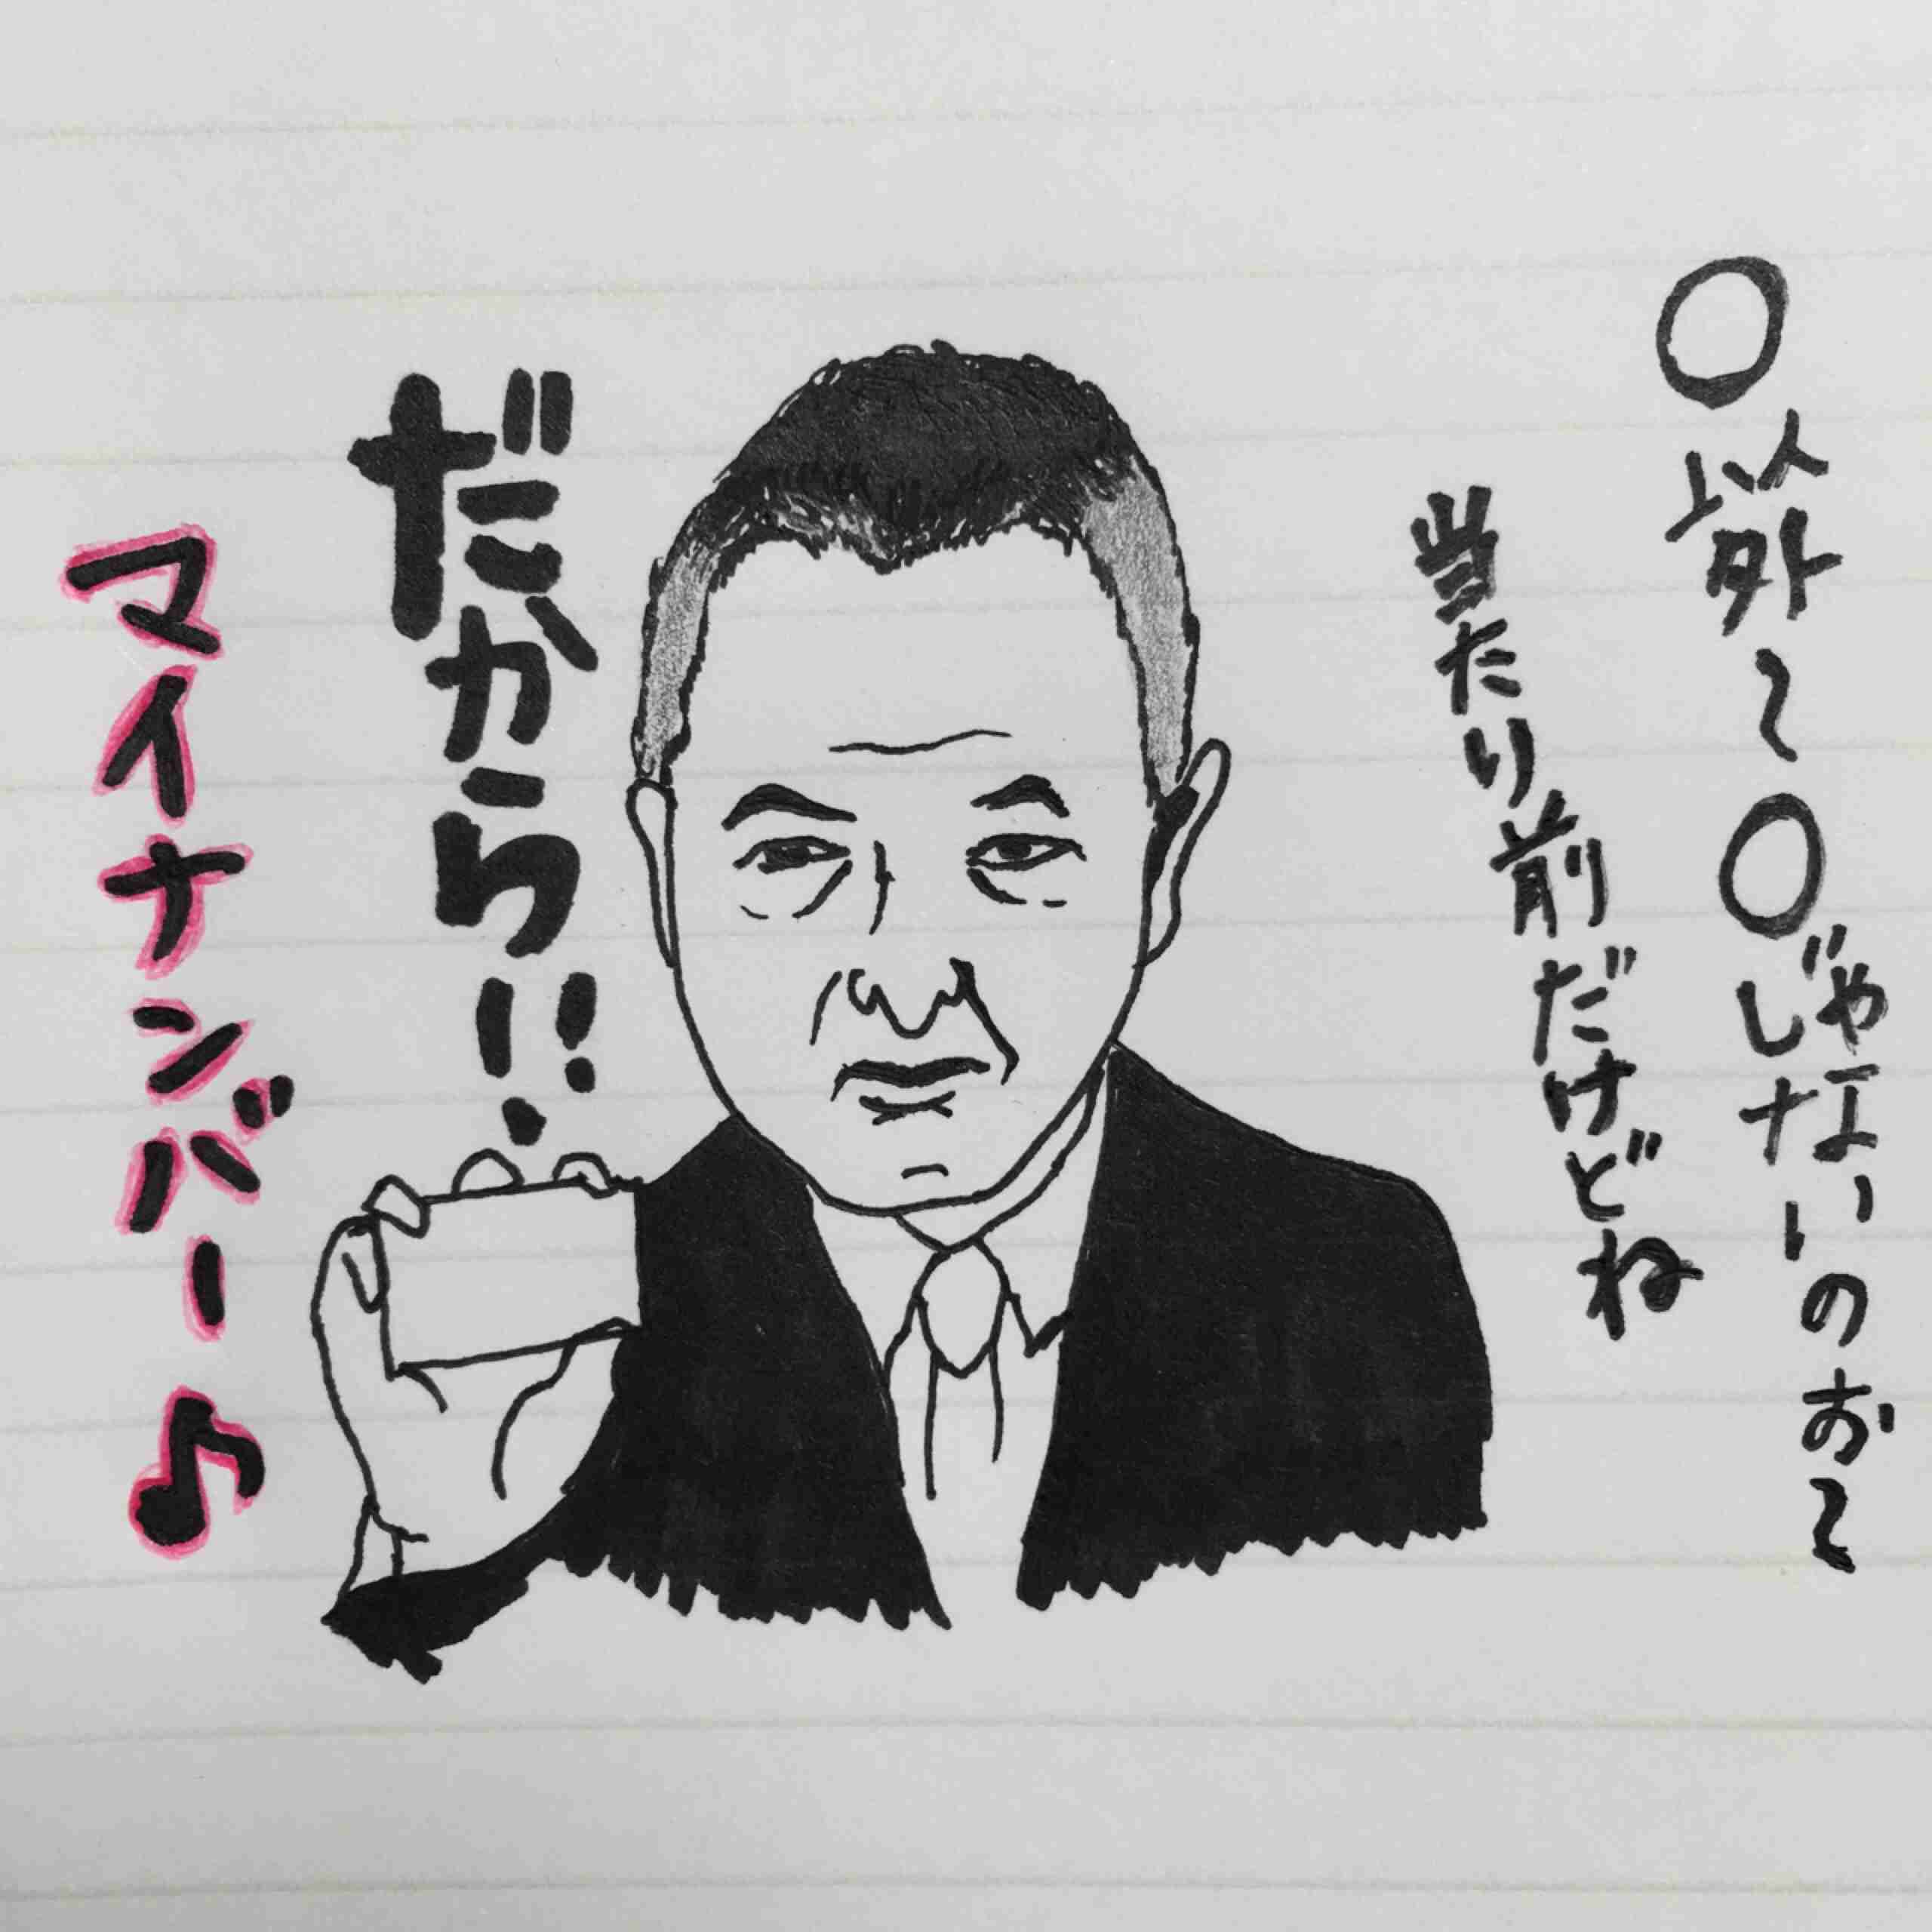 〇以外〜〇じゃないのお〜
当たり前だけどね
だから!!
マイナンバー♪